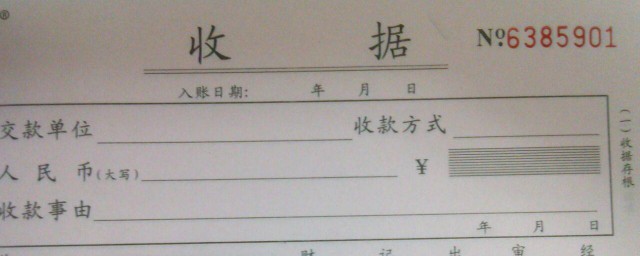 ®
收 据 №6385901
入账日期: 年 月 日
交款单位 收款方式
人 民 币(大写) ¥
收款事由
年 月 日
财 记 出 审 经
(一)收据存根